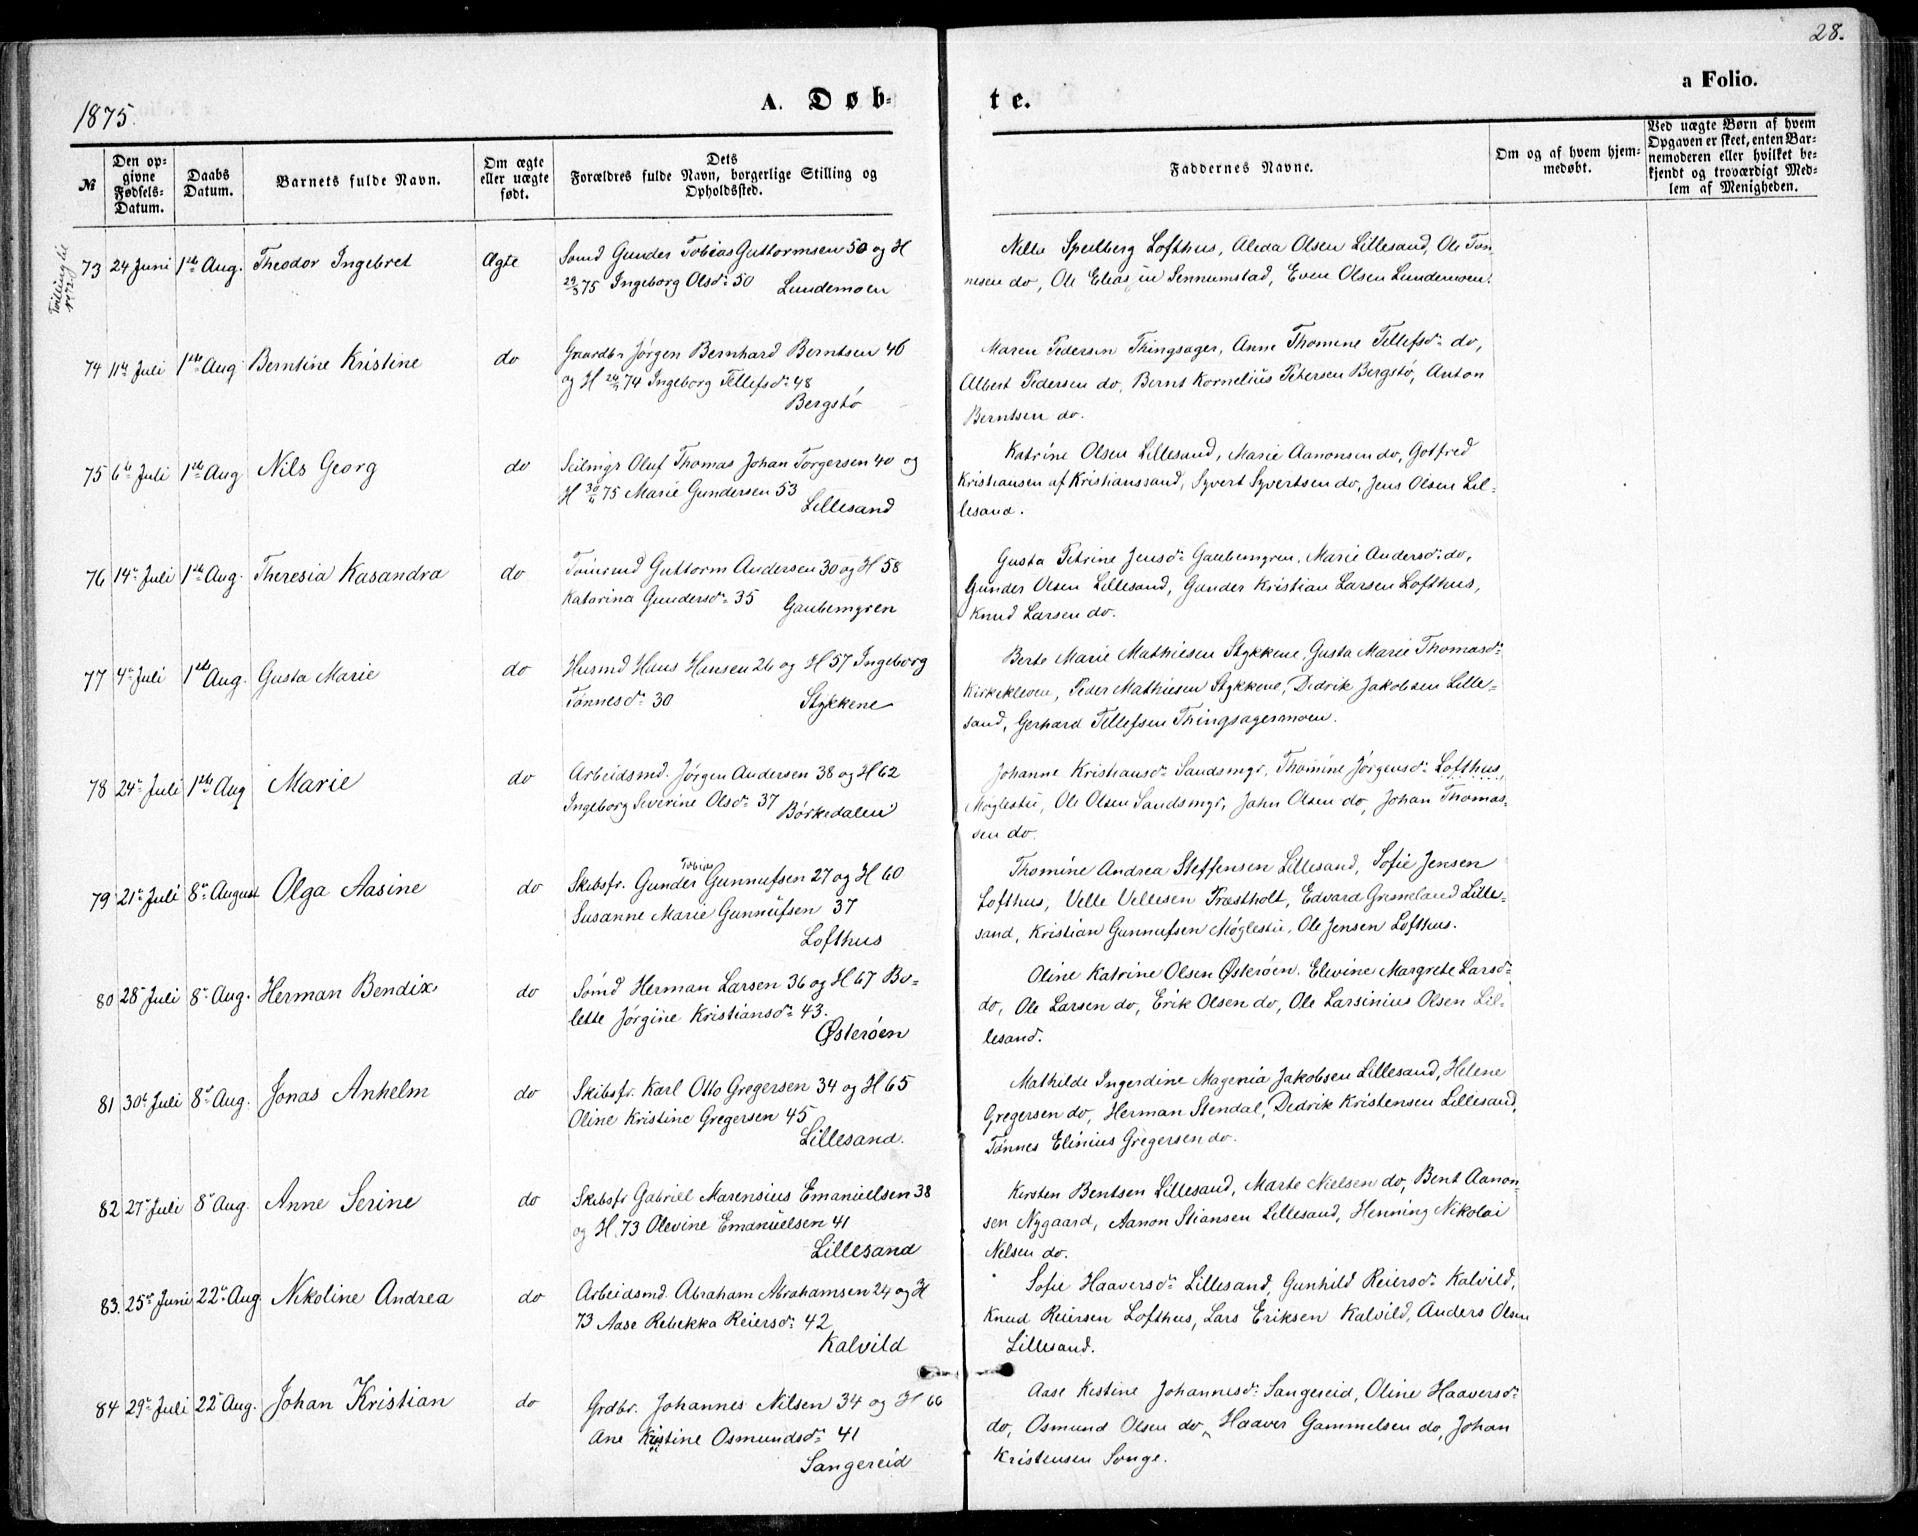 28.
1875.
A. Døb-
te.
a Folio.
№
Den op-
givne
Fødsels-
Datum.
Daabs
Datum.
Barnets fulde Navn.
Om ægte
eller uægte
født.
Dets
Forældres fulde Navn, borgerlige Stilling og
Opholdssted.
Faddernes Navne.
Om og af hvem hjem-
medøbt.
Ved uægte Børn af hvem
Opgaven er skeet, enten Bar-
nemoderen eller hvilket be-
kjendt og troværdigt Med-
lem af Menigheden.
Tvilling til
73 24 Juni 1ste Aug. Theodor Ingebret Ægte Sømd Gunder Tobias Guttormsen 50 og H
29/3 75 Ingeborg Olsdr 50 Lundemoen
Nella Speilberg Lofthus, Aleda Olsen Lillesand, Ole Tøn-
nesen do, Ole Eliassen Sennumstad, Even Olsen Lundemoen.
74 11te Juli 1ste Aug Berntine Kristine do Gaardbr Jørgen Bernhard Berntsen 46
og H 74 Ingeborg Tellefsdr 48
Bergstø
Maren Pedersen Thingsager, Anne Thomine Tellefsdr do,
Albert Pedersen do, Bernt Kornelius Petersen Bergstø, Anton
Berntsen do.
75 6te Juli 1ste Aug Nils Georg do Seilmgr Oluf Thomas Johan Torgersen 40 og
H 75 Marie Gundersen 53
Lillesand
Katrine Olsen Lillesand, Marie Aanonsen do, Gotfred
Kristiansen af Kristianssand, Syvert Syvertsen do, Jens Olsen Lil-
lesand.
76 14de Juli 1ste Aug. Theresia Kasandra do Tømrmd Guttorm Andersen 30 og H 58
Katarina Gundersdr 35 Gaubemyren
Gusta Petrine Jensdr Gaubemyren, Marie Andersdr do,
Gunder Olsen Lillesand, Gunder Kristian Larsen Lofthus,
Knud Larsen do.
77 4de Juli 1ste Aug. Gusta Marie do Husmd Hans Hansen 26 og H 57 Ingeborg
Tønnesdr 30 Stykkene
Berte Marie Mathiesen Stykkene, Gusta Marie Thomasdr
Kirkekleven, Peder Mathiesen Stykkene, Didrik Jakobsen Lille-
sand, Gerhard Tellefsen Thingsagermoen.
78 24de Juli 1ste Aug Marie do Arbeidsmd. Jørgen Andersen 38 og H 62
Ingeborg Severine Olsdr 37 Børkedalen
Johanne Kristiansdr Sandsmyr, Thomine Jørgensdr Lofthus,
Møglestu, Ole Olsen Sandsmyr, John Olsen do, Johan Thomas-
sen do.
79 21de Juli 8de August Olga Aasine do Skibsfr. Gunder Tobias Gunnufsen 27 og H 60
Susanne Marie Gunnufsen 37
Lofthus
Thomine Andrea Steffensen Lillesand, Sofie Jensen
Lofthus, Velle Vellesen Træstholt, Edvard Grimeland Lille-
sand, Kristian Gunnufsen Møglestu, Ole Jensen Lofthus.
80 28de Juli 8de Aug. Herman Bendix do Sømd Herman Larsen 36 og H 67 Bo-
lette Jørgine Kristiansdr 43.
Østerøen
Oline Katrine Olsen Østerøen, Elevine Margrete Larsdr
do, Ole Larsen do, Erik Olsen do, Ole Larsinius Olsen Lil-
lesand.
81 30de Juli 8de Aug. Jonas Anhelm do Skibsfr. Karl Otto Gregersen 34 og H 65
Oline Kristine Gregersen 45
Lillesand.
Mathilde Ingerdine Magenia Jakobsen Lillesand, Helene
Gregersen do, Herman Stendal, Didrik Kristensen Lillesand,
Tønnes Elinius Gregersen do.
82 27de Juli 8de Aug. Anne Serine do Skibsfr Gabriel Marensius Emanuelsen 38
og H. 73 Olevine Emanuelsen 41
Lillesand
Kirsten Bentsen Lillesand, Marte Nielsen do, Bent Aanon-
sen Nygaard, Aanon Stiansen Lillesand, Henning Nikolai
Nelsen do.
83. 25de Juni 22de Aug Nikoline Andrea do Arbeidsmd. Abraham Abrahamsen 24 og H
73 Aase Rebekka Reiersdr 42
Kalvild
Sofie Haaversdr Lillesand, Gunhild Reiersdr Kalvild,
Knud Reiersen Lofthus, Lars Eriksen Kalvild, Anders Olsen
Lillesand.
84 29de Juli 22de Aug. Johan Kristian do Grdbr. Johannes Nilsen 34 og H 66
Ane Kistine Osmundsdr 41
Sangereid
Aase Kistine Johannesdr Sangereid, Oline Haaversdr
do, Osmund Olsen do, Haaver Gammelsen do, Johan
Kristensen Songe.